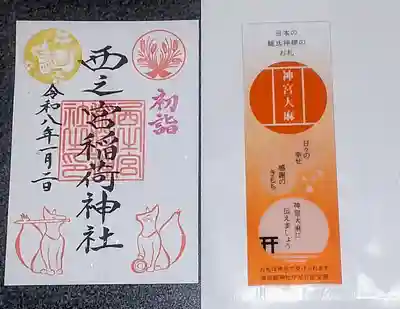 初詣
西之宮稲荷神社
令和八年一月二日
日本の
総氏神様の
お札
神宮大麻
日々の
幸せ
感謝の
きもち
神宮大麻に
伝えましょう
お札は神社で受けられます